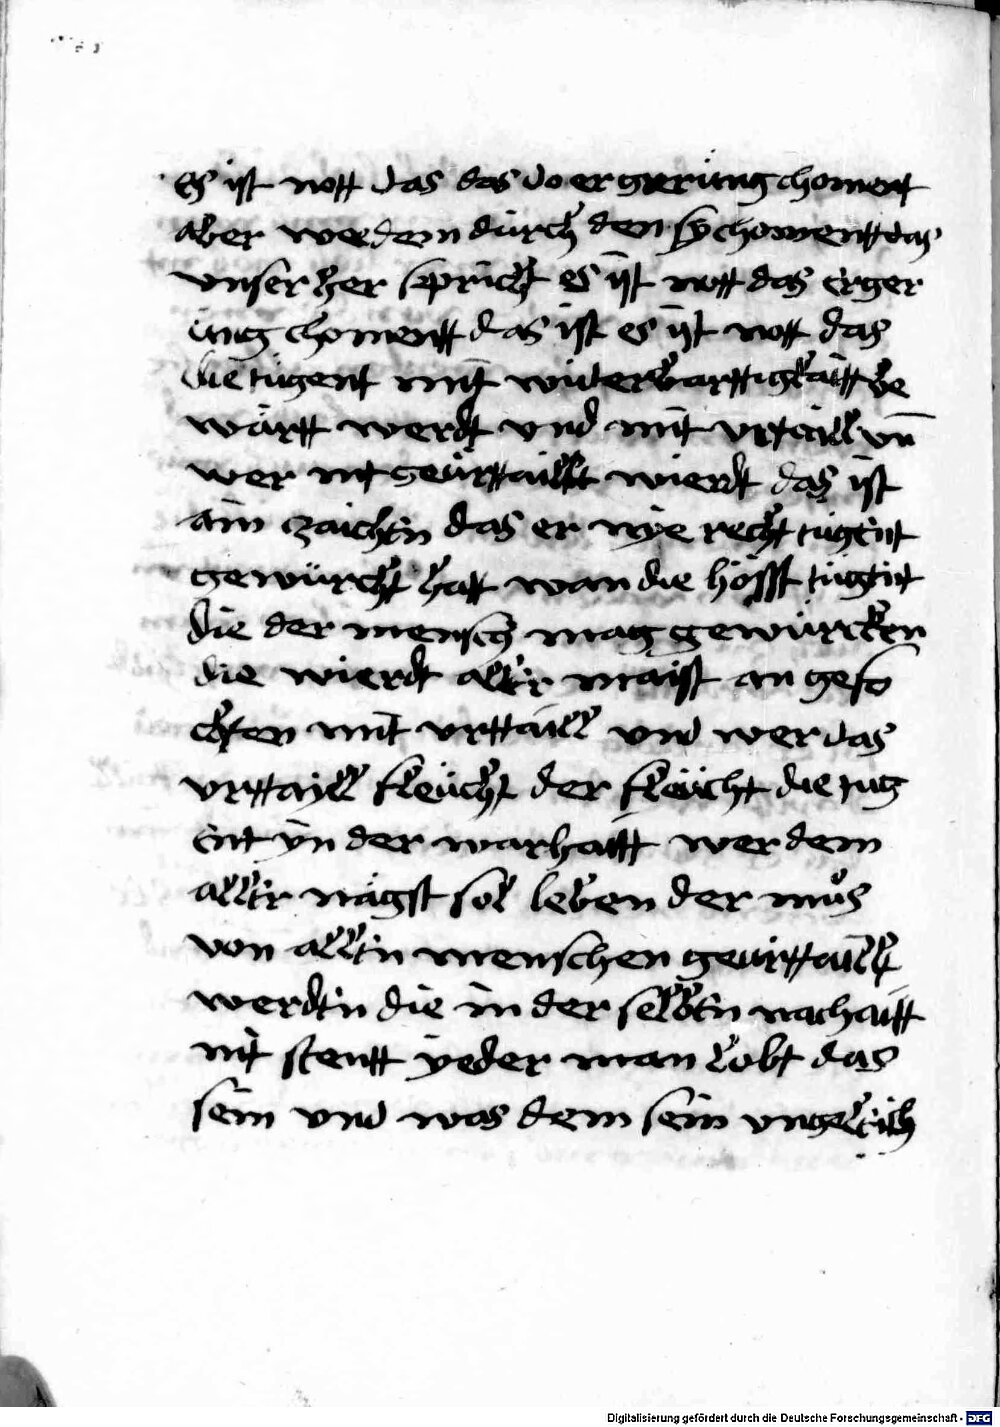 es ist nott das das do ergerüng choment
aber we dem dürch den sy choment das
vnser her spricht es ist nott das erger
üng choment das ist es ist nott das
die tügent mit widerbarttigkaitt be
wärt werdt vnd mit vrtaill vn̄
wer nit geürttaillt wierdt das ist
ain zaichen das er nye recht tügent
gewürcht hatt wan die höfft tügent
die der mensch mag gewürcken
die wierdt aller maist an gefo
chten mit vrttaill vnd wer das
vrttayll fleücht der fleücht die tüg
ent yn der warhaitt wer dem
aller nägst sol leben der mus
von allen menschen geürttaillt
werden die in der selben nachaitt
nit stentt yeder man lobt das
sein vnd was dem sein vngeleich
Digitalisierung gefördert durch die Deutsche Forschungsgemeinschaft - DFG